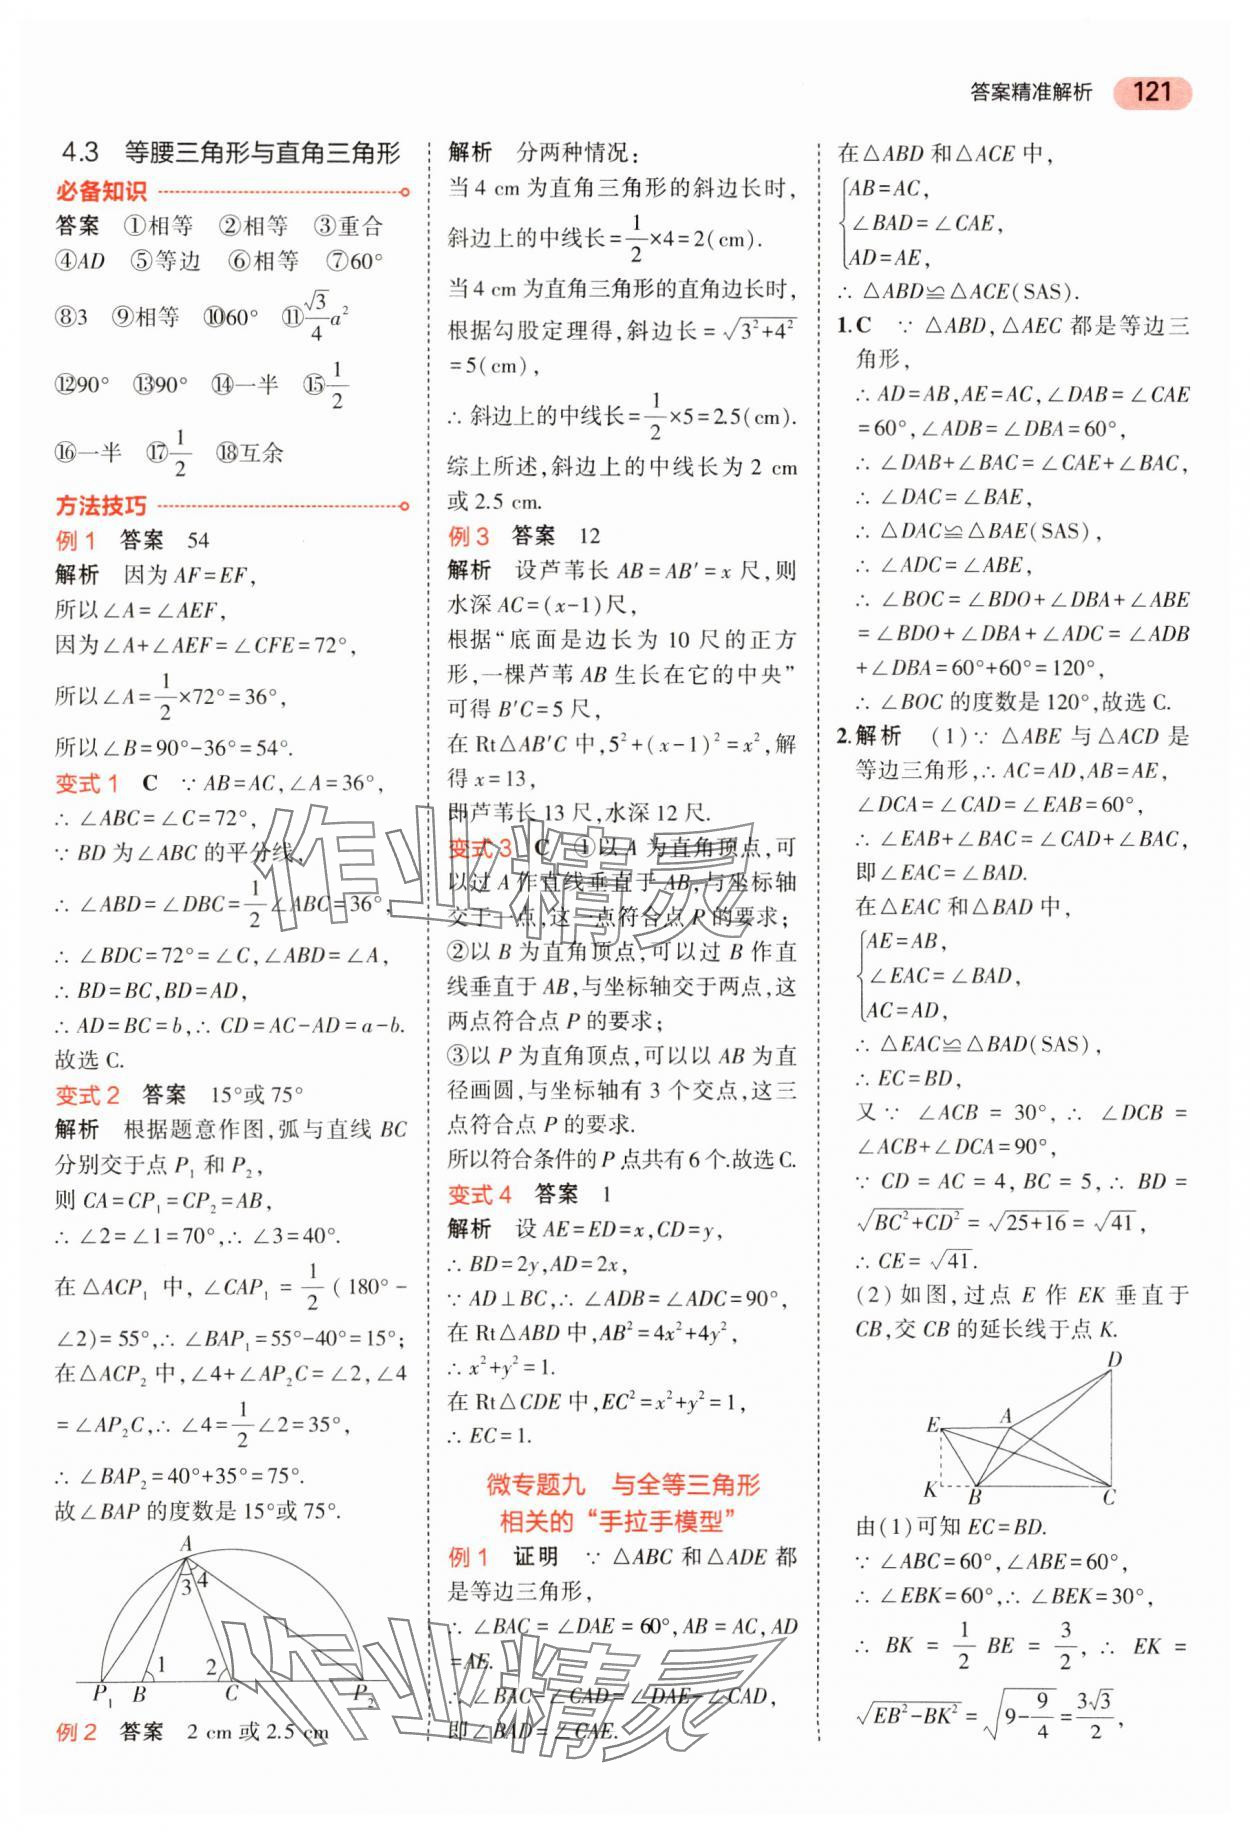 答案精准解析 121
4.3 等腰三角形与直角三角形
必备知识
答案 ①相等 ②相等 ③重合
④AD ⑤等边 ⑥相等 ⑦60°
⑧3 ⑨相等 ⑩60° ⑪√3/4 a²
⑫90° ⑬90° ⑭一半 ⑮1/2
⑯一半 ⑰1/2 ⑱互余
方法技巧
例1 答案 54
解析 因为 AF=EF,
所以∠A=∠AEF,
因为∠A+∠AEF=∠CFE=72°,
所以∠A=1/2×72°=36°,
所以∠B=90°-36°=54°.
变式1 C ∵AB=AC,∠A=36°,
∴∠ABC=∠C=72°,
∵BD 为∠ABC 的平分线,
∴∠ABD=∠DBC=1/2∠ABC=36°,
∴∠BDC=72°=∠C,∠ABD=∠A,
∴BD=BC,BD=AD,
∴AD=BC=b,∴CD=AC-AD=a-b.
故选C.
变式2 答案 15°或75°
解析 根据题意作图,弧与直线 BC
分别交于点 P₁ 和 P₂,
则 CA=CP₁=CP₂=AB,
∴∠2=∠1=70°,∴∠3=40°.
在△ACP₁ 中,∠CAP₁=1/2(180°-
∠2)=55°,∴∠BAP₁=55°-40°=15°;
在△ACP₂ 中,∠4+∠AP₂C=∠2,∠4
=∠AP₂C,∴∠4=1/2∠2=35°,
∴∠BAP₂=40°+35°=75°.
故∠BAP 的度数是15°或75°.
A
3 4
1 2
P₁ B C P₂
例2 答案 2 cm 或 2.5 cm
解析 分两种情况:
当 4 cm 为直角三角形的斜边长时,
斜边上的中线长=1/2×4=2(cm).
当 4 cm 为直角三角形的直角边长时,
根据勾股定理得,斜边长=√(3²+4²)
=5(cm),
∴斜边上的中线长=1/2×5=2.5(cm).
综上所述,斜边上的中线长为 2 cm
或 2.5 cm.
例3 答案 12
解析 设芦苇长 AB=AB′=x 尺,则
水深 AC=(x-1)尺,
根据“底面是边长为 10 尺的正方
形,一棵芦苇 AB 生长在它的中央”
可得 B′C=5 尺,
在 Rt△AB′C 中,5²+(x-1)²=x²,解
得 x=13,
即芦苇长 13 尺,水深 12 尺.
变式3 C ①以 A 为直角顶点,可
以过 A 作直线垂直于 AB,与坐标轴
交于一点,这一点符合点 P 的要求;
②以 B 为直角顶点,可以过 B 作直
线垂直于 AB,与坐标轴交于两点,这
两点符合点 P 的要求;
③以 P 为直角顶点,可以以 AB 为直
径画圆,与坐标轴有 3 个交点,这三
点符合点 P 的要求.
所以符合条件的 P 点共有 6 个.故选C.
变式4 答案 1
解析 设 AE=ED=x,CD=y,
∴BD=2y,AD=2x,
∵AD⊥BC,∴∠ADB=∠ADC=90°,
在 Rt△ABD 中,AB²=4x²+4y²,
∴x²+y²=1.
在 Rt△CDE 中,EC²=x²+y²=1,
∴EC=1.
微专题九 与全等三角形
相关的“手拉手模型”
例1 证明 ∵△ABC 和△ADE 都
是等边三角形,
∴∠BAC=∠DAE=60°,AB=AC,AD
=AE.
∴∠BAC-∠CAD=∠DAE-∠CAD,
即∠BAD=∠CAE.
在△ABD 和△ACE 中,
AB=AC,
∠BAD=∠CAE,
AD=AE,
∴△ABD≌△ACE(SAS).
1.C ∵△ABD,△AEC 都是等边三
角形,
∴AD=AB,AE=AC,∠DAB=∠CAE
=60°,∠ADB=∠DBA=60°,
∴∠DAB+∠BAC=∠CAE+∠BAC,
∴∠DAC=∠BAE,
∴△DAC≌△BAE(SAS),
∴∠ADC=∠ABE,
∴∠BOC=∠BDO+∠DBA+∠ABE
=∠BDO+∠DBA+∠ADC=∠ADB
+∠DBA=60°+60°=120°,
∴∠BOC 的度数是120°,故选C.
2.解析 (1)∵△ABE 与△ACD 是
等边三角形,∴AC=AD,AB=AE,
∠DCA=∠CAD=∠EAB=60°,
∴∠EAB+∠BAC=∠CAD+∠BAC,
即∠EAC=∠BAD.
在△EAC 和△BAD 中,
AE=AB,
∠EAC=∠BAD,
AC=AD,
∴△EAC≌△BAD(SAS),
∴EC=BD,
又∵∠ACB=30°,∴∠DCB=
∠ACB+∠DCA=90°,
∵CD=AC=4,BC=5,∴BD=
√(BC²+CD²)=√(25+16)=√41,
∴CE=√41.
(2)如图,过点 E 作 EK 垂直于
CB,交 CB 的延长线于点 K.
D
E A
K B C
由(1)可知 EC=BD.
∵∠ABC=60°,∠ABE=60°,
∴∠EBK=60°,∴∠BEK=30°,
∴BK=1/2 BE=3/2,∴EK=
√(EB²-BK²)=√(9-9/4)=3√3/2,
作业精灵
作业精灵